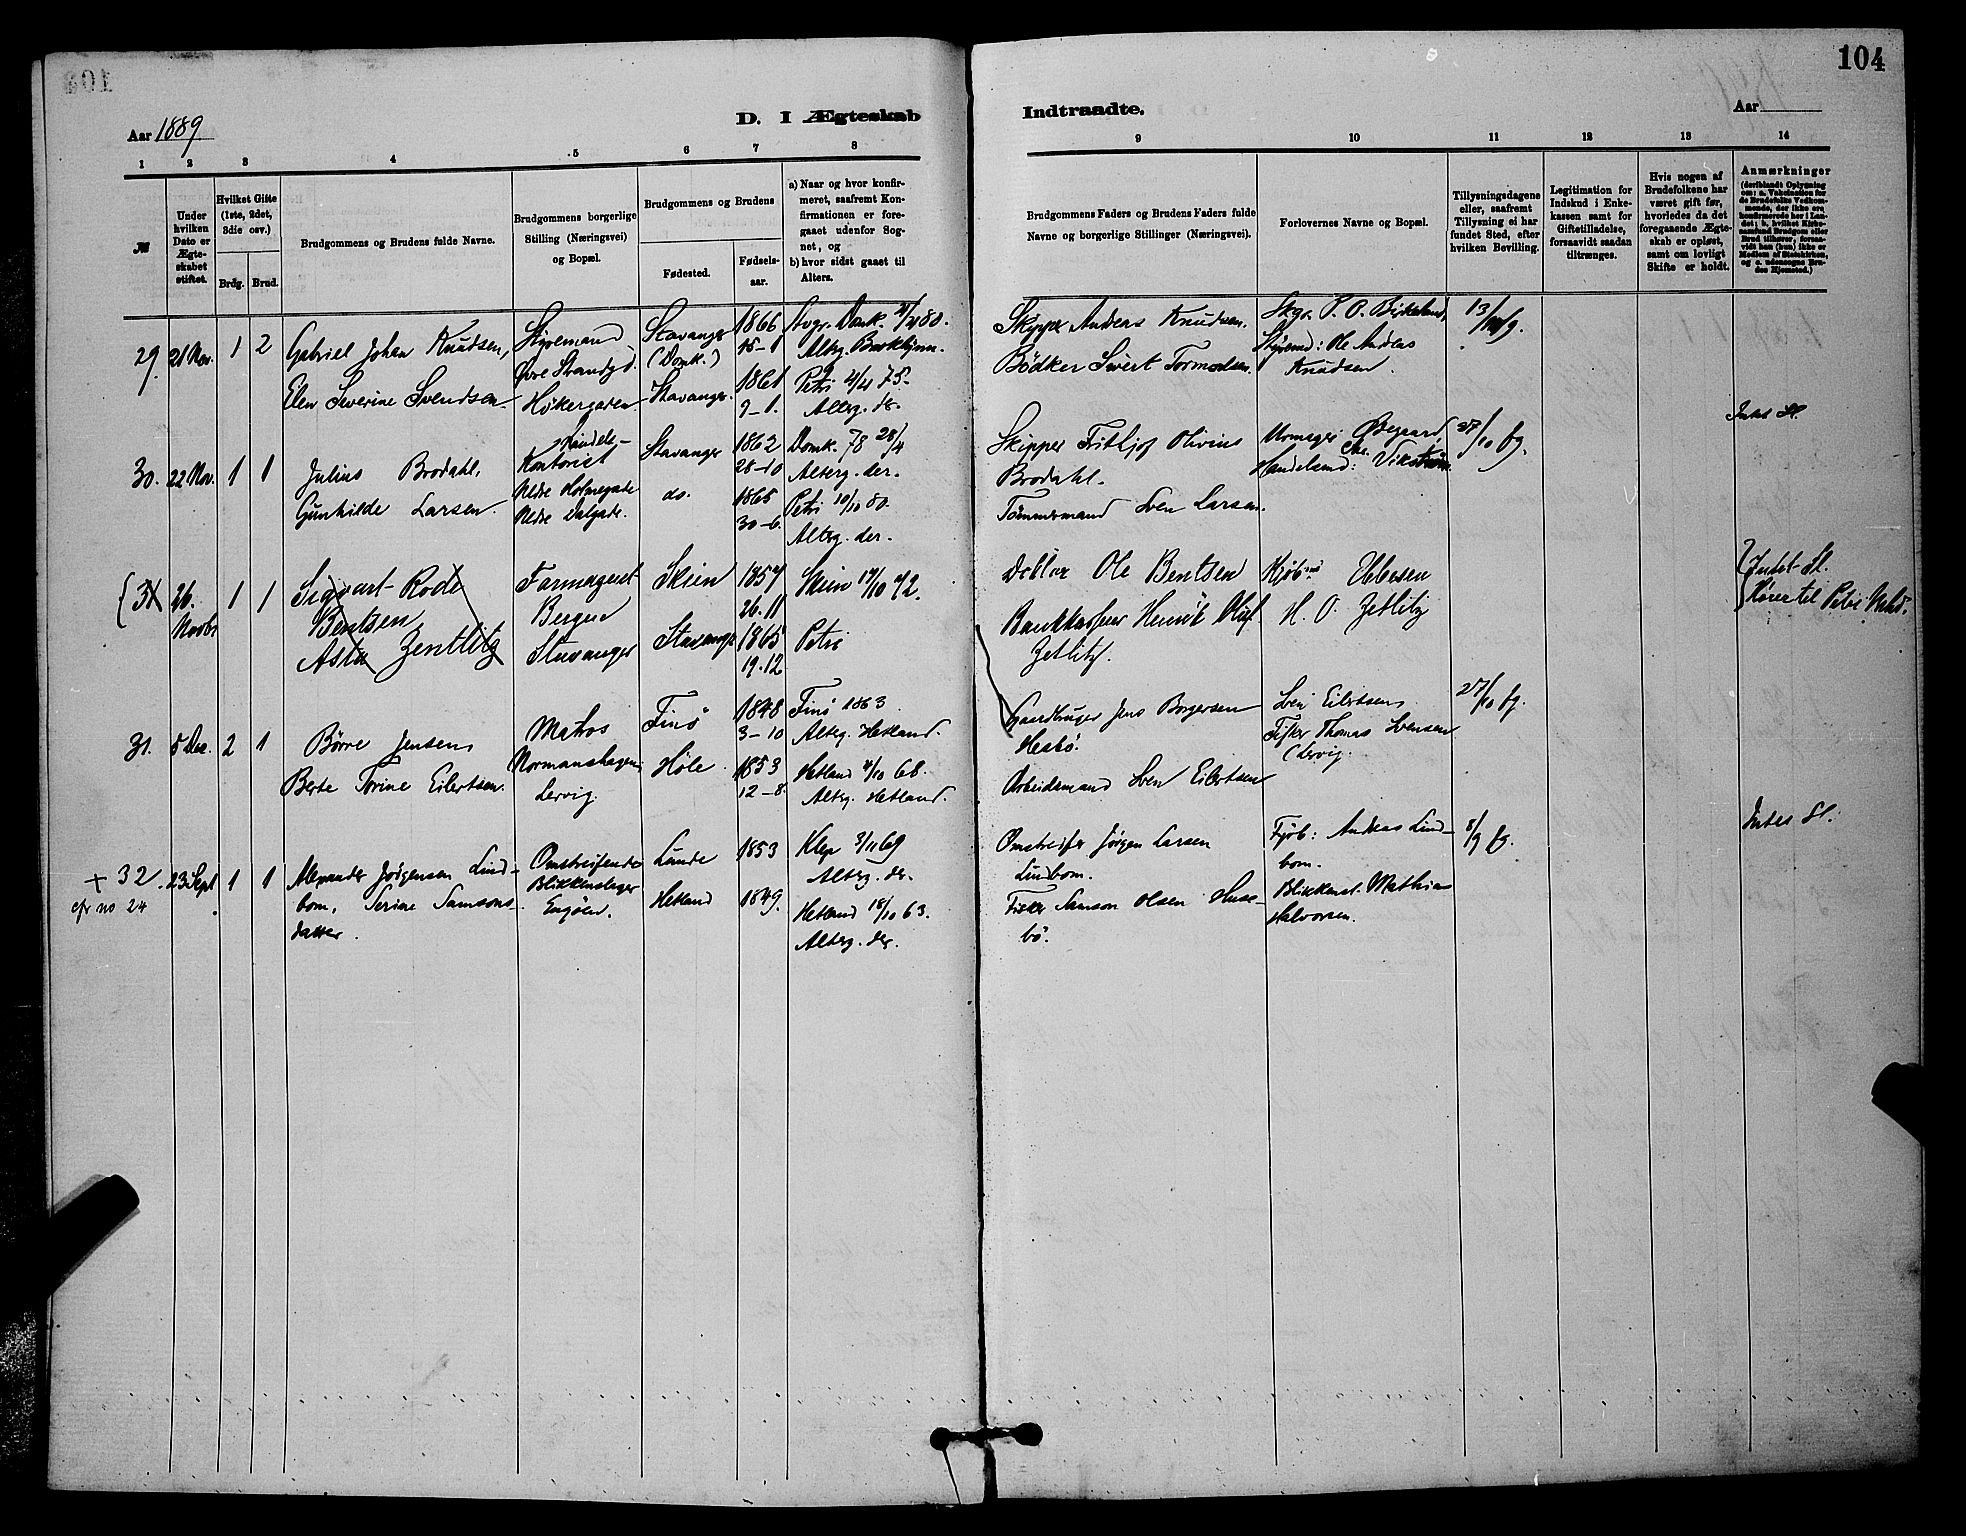 104
Aar 1889
D. I Ægteskab
Indtraadte.
Aar
1 2 3 4 5 6 7 8 9 10 11 12 13 14
№
Under hvilken Dato er Ægteskabet stiftet.
Hvilket Gifte (1ste, 2det, 3die osv.)
Brdg. Brud.
Brudgommens og Brudens fulde Navne.
Brudgommens borgerlige Stilling (Næringsvei) og Bopæl.
Brudgommens og Brudens
Fødested.
Fødselsaar.
a) Naar og hvor konfirmeret, saafremt Konfirmationen er foregaaet udenfor Sognet, og
b) hvor sidst gaaet til Alters.
Brudgommens Faders og Brudens Faders fulde Navne og borgerlige Stillinger (Næringsvei).
Forlovernes Navne og Bopæl.
Tillysningsdagene eller, saafremt Tillysning ei har fundet Sted, efter hvilken Bevilling.
Legitimation for Indskud i Enkekassen samt for Giftetilladelse, forsaavidt saadan tiltrænges.
Hvis nogen af Brudefolkene har været gift før, hvorledes da det foregaaende Ægteskab er opløst, samt om lovligt Skifte er holdt.
Anmærkninger
29. 21 Nov. 1 2
Gabriel Johan Knudsen,
Elen Severine Svendsen
Styrmand
Øvre Strandgd.
Høkergaden
Stavanger
(Domk.)
Stavanger
1866
15-1
1861
9-1.
Petri 4/4 75.
Alterg. do.
Skipper Andreas Knudsen.
Bödker Sivert Tormodsen.
Skgr. P. O. Birkeland,
Styrmd: Ole Andreas
Knudsen.
30. 22 Nov. 1 1
Julius Brodahl,
Gunhilde Larsen.
Handels-
Kontorist
Nedre Holmegade
Nedre Dalgade.
Stavanger
do.
1862
28-10
1865
30-6.
Domk. 78 28/4
Alterg. der.
Petri 10/10 80.
Alterg. der.
Skipper Frithjof Olivius
Brodahl.
Tömmermand Sven Larsen.
Urmager Øegaard
Handelsmd: Chr. Vikstrøm
27/10 fg.
Intet Sl.
31 26. Novbr 1 1
Sigvart Rode
Bentsen
Asta Zentlitz
Farmaceut
Bergen
Stavanger
Skien
Stavanger
1857
26.11
1865
19.12
Skien 19/10 72.
Petri
Doktor Ole Bentsen
Bankkasserer Henrik Oluf
Zetlitz.
Kjøbmd Ebbesen
H. O. Zetlitz
Intet Sl.
Hører til Petri Mht.
31. 5 Dec. 2 1
Börre Jensen
Berte Torine Eilertsen.
Matros
Normanshagen
Lervig.
Finö
Höle
1848
3-10
1853
12-8.
Finö 1863
Alterg. Hetland.
Hetland 4/10 68.
Alterg. Hetland.
Gaardbruger Jens Borgersen
Hesbö.
Arbeidsmand Sven Eilertsen
Sven Eilertsen,
Fisker Thomas Svensen
(Lervig.
27/10 fg.
+ 32. 23 Sept. 1 1
cfr no 24
Alexander Jörgensen Lind-
bom, Serine Samsons-
datter.
Omstreifende
Blikkenslager
Engöen.
Lunde
Hetland
1853
1849.
Klep 3/11 69
Alterg. der.
Hetland 18/10 63.
Alterg. der.
Omstreifer Jörgen Larsen
Lindbom.
Fisker Samson Olsen Huse-
bö.
Fjöb: Andreas Lind-
bom.
Blikkensl. Mathias
Halvorsen.
8/9 fg.
Intet Sl.